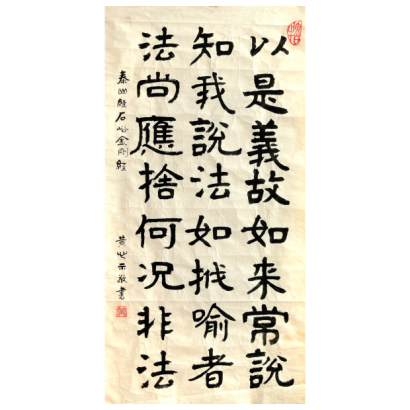 以是義故如来常說
知我說法如栰喻者
法尚應捨何况非法
泰山經石峪金剛經